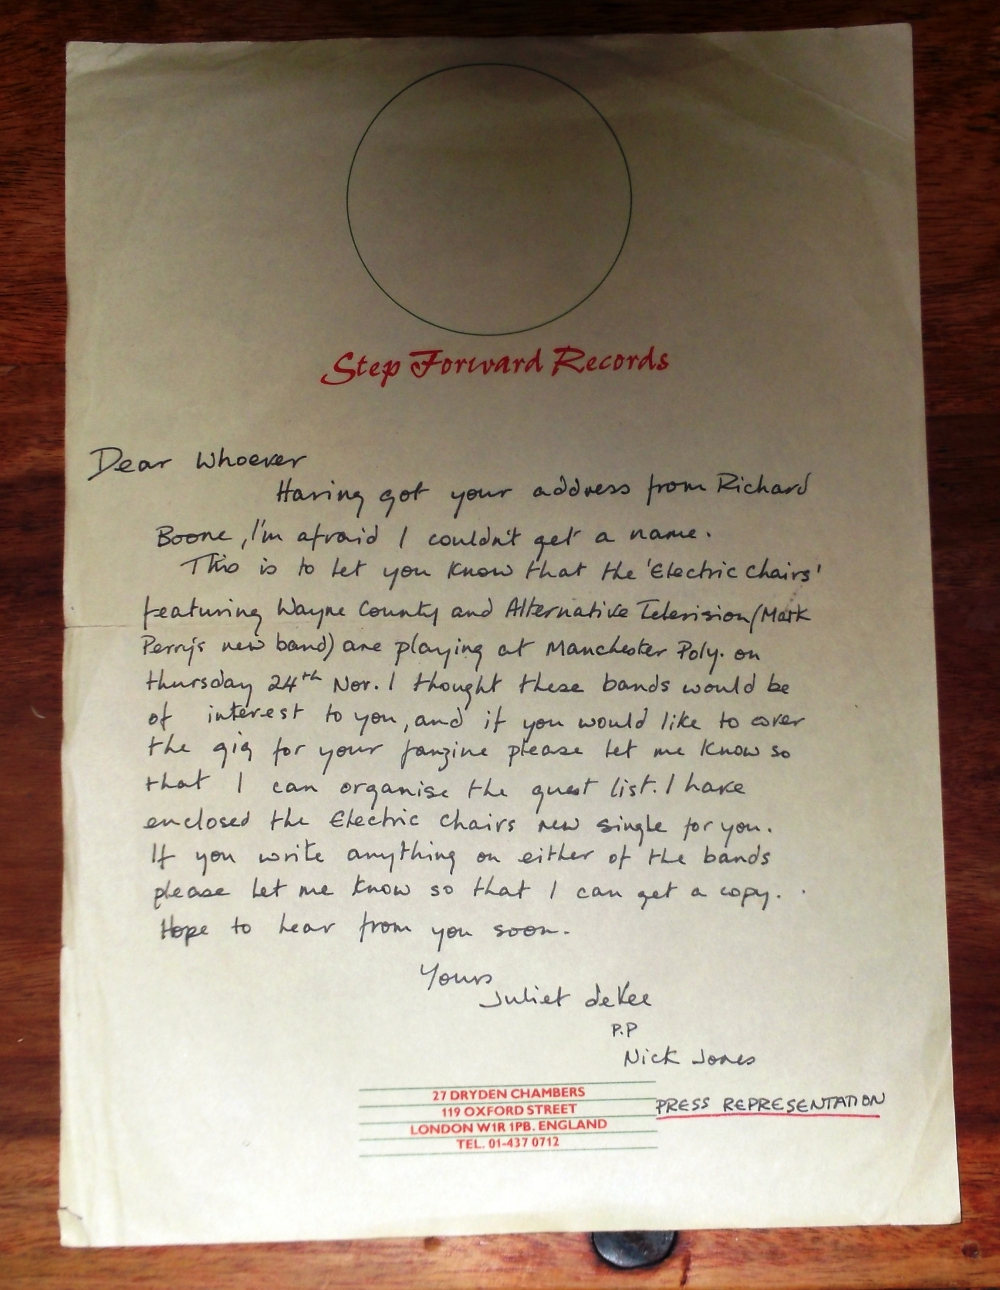 Step Forward Records
Dear Whoever
Having got your address from Richard
Boone, I'm afraid I couldn't get a name.
This is to let you know that the 'Electric Chairs'
featuring Wayne County and Alternative Television (Mark
Perry's new band) are playing at Manchester Poly. on
thursday 24th Nov. I thought these bands would be
of interest to you, and if you would like to cover
the gig for your fanzine please let me know so
that I can organise the guest list. I have
enclosed the Electric Chairs new single for you.
If you write anything on either of the bands
please let me know so that I can get a copy.
Hope to hear from you soon.
Yours
Juliet deVee
P.P
Nick Jones
PRESS REPRESENTATION
27 DRYDEN CHAMBERS
119 OXFORD STREET
LONDON W1R 1PB. ENGLAND
TEL. 01-437 0712